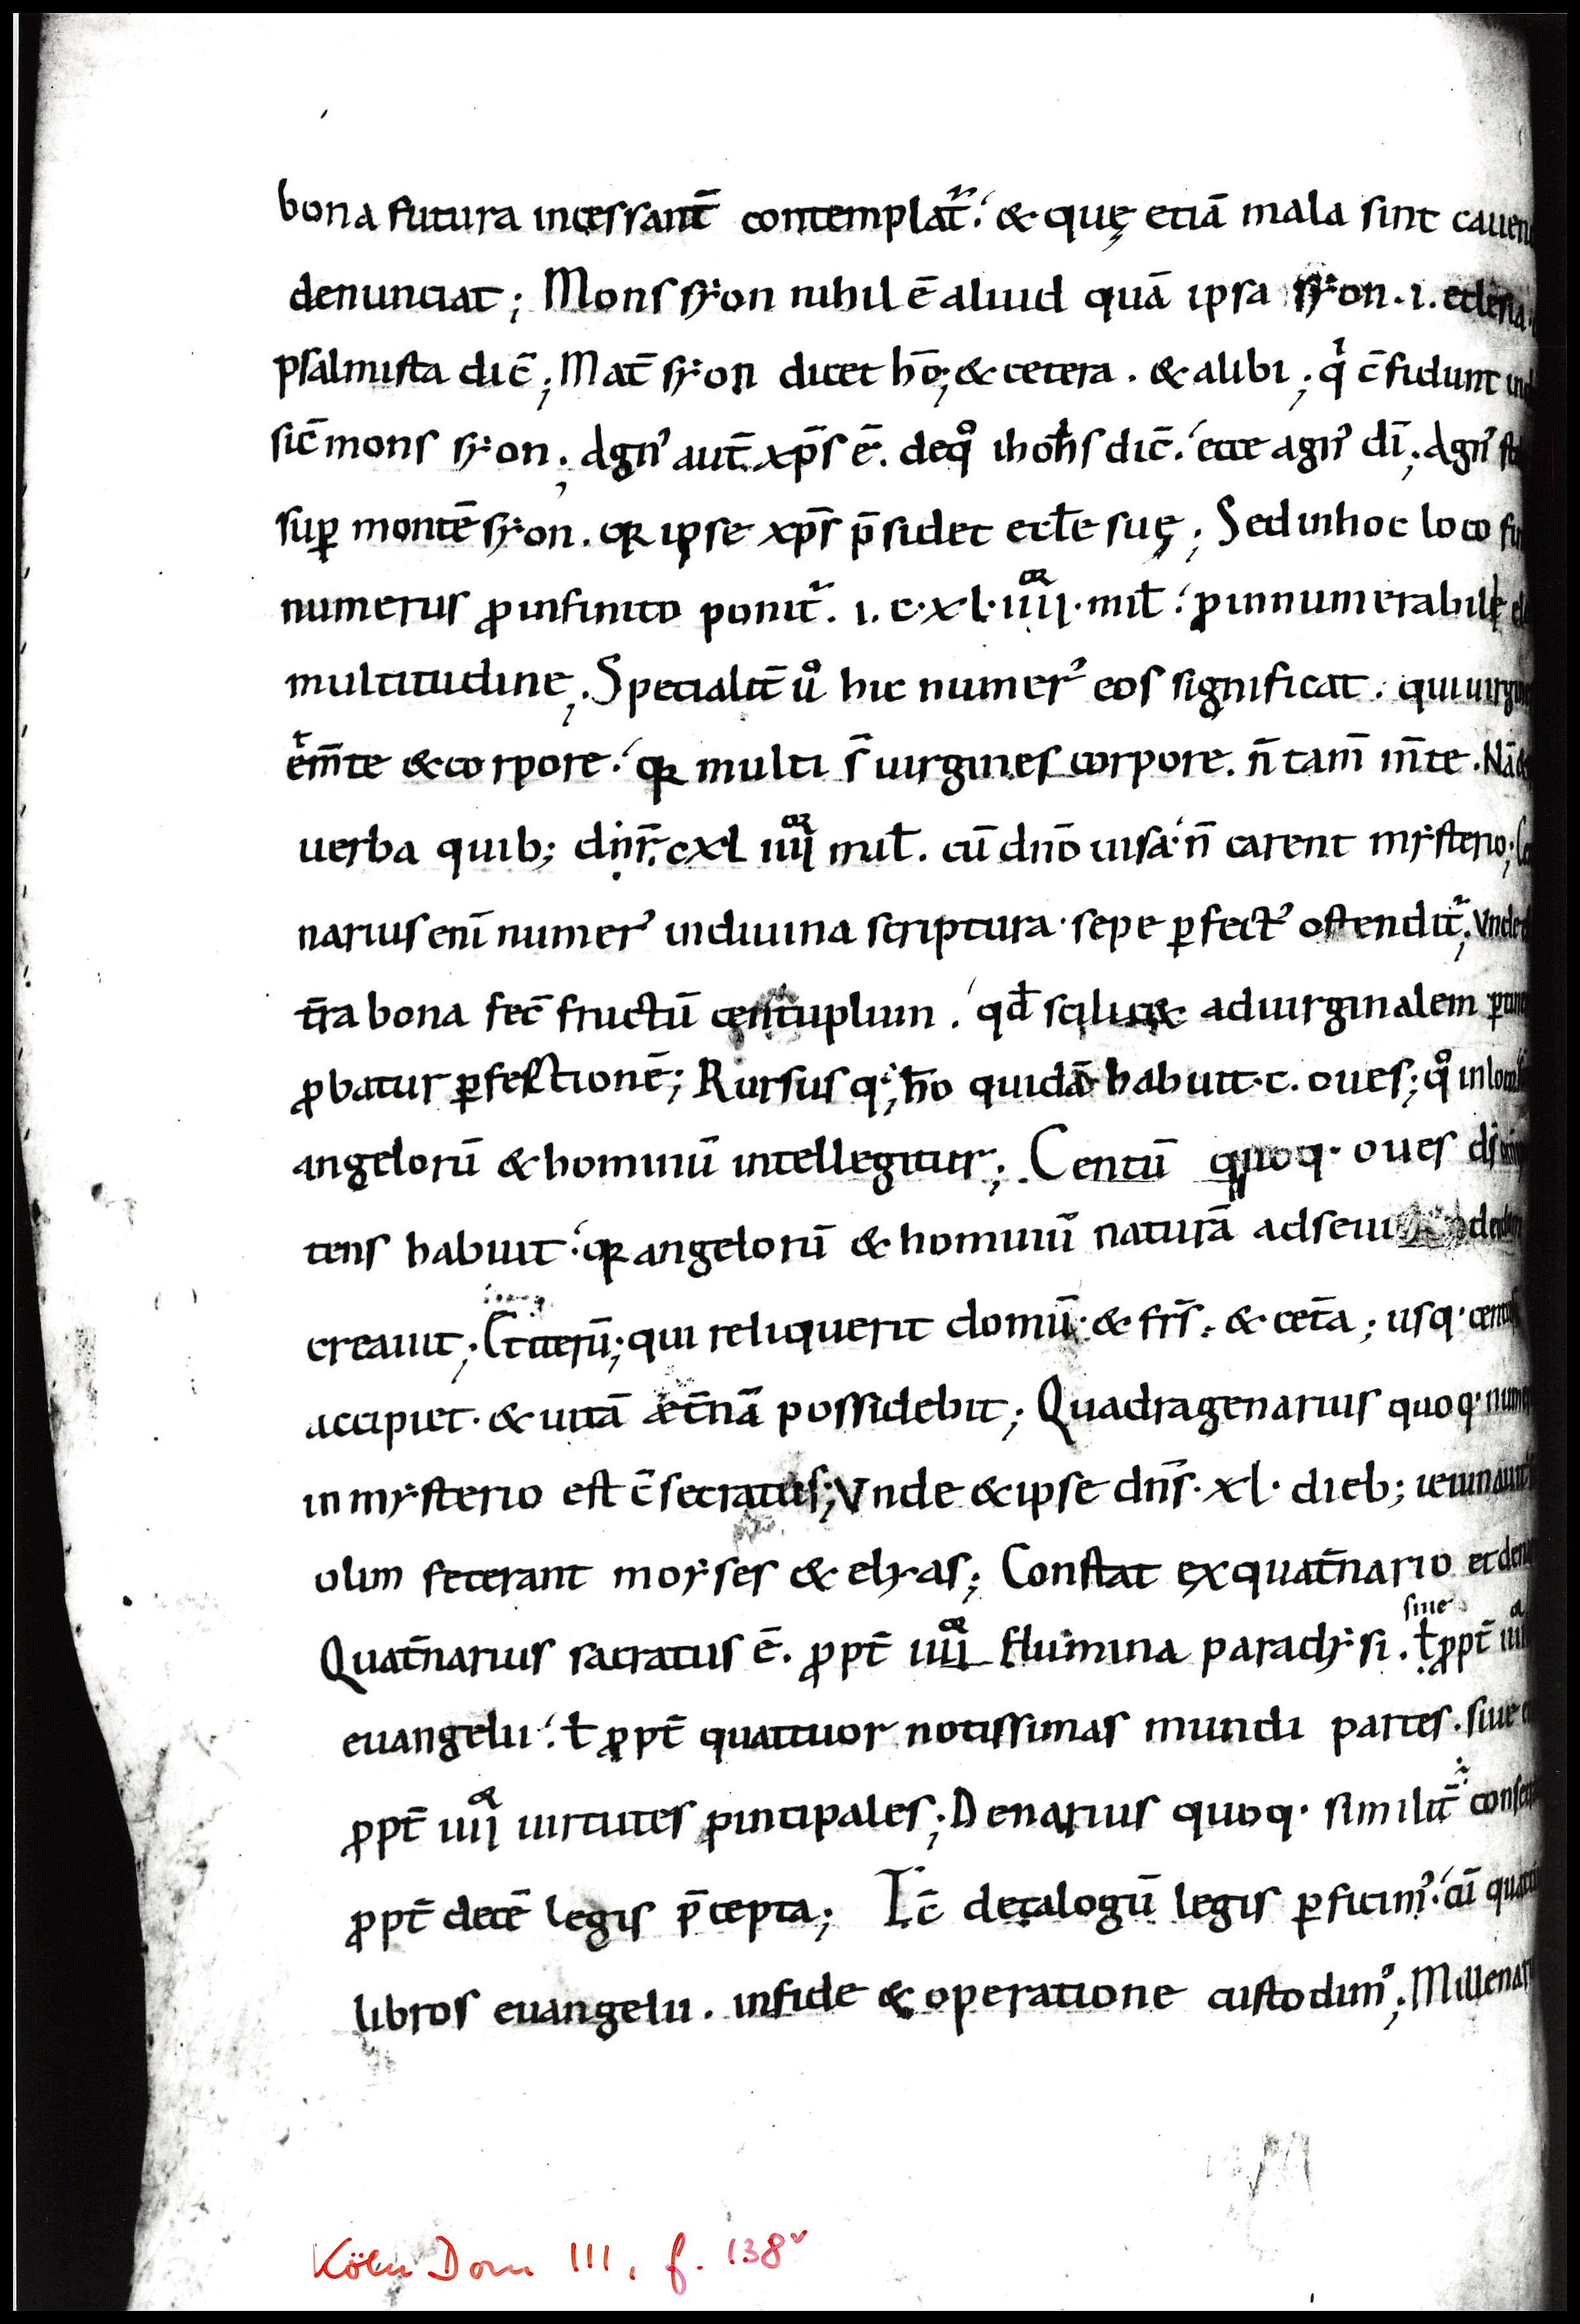 bona futura incessant̄ contemplat̄. & quę etiā mala sint
denunciat; Mons syon nihil ē aliud quā ipsa syon. i. eclesia.
psalmista dic̄; Mat̄ syon dicet hō; & cetera. & alibi; q̇ c̄fidunt
sic̄ mons syon; Agn᾽ aut̄ xp̄s ē. deq̊ iohs̄ dic̄. ecce agn᾽ dī; Agn᾽
sup̱ montē syon. qꝛ ipse xp̄s p̄sidet ecłe suę; Sed in hoc loco
numerus ꝓinfinito ponit̄. i. c. xl. iiiior. mił. p innumerabile
multitudine; Specialit̄ ů hic numer᾽ eos significat. qui
em̄te & corpore. qꝛ multi s̄ uirgines corpore. n̄ tam̄ m̄te. Nā
uerba quib; dinr̄. cxl iiiior mił. cū dn̄o uisa n̄ carent mysterio;
narius enī numer᾽ indiuina scriptura sepe ꝑfect᾽ ostendit̄; Vnde
t̄ra bona fec̄ fructū centuplum. qd̄ scilic& aduirginalem
ꝓbatur ꝑfectionē; Rursus q; hō quidā habuit. c. oues; q̊ in
angelorū & hominū intellegitur; Centū quoq. oues
tens habuit. qꝛ angelorū & hominū naturā
creauit; Et iterū; qui reliquerit domū. & fr̄s. & cet̄a; usq.
accipiet. & uitā æt̄nā possidebit; Quadragenarius quoq.
in mysterio est c̄secratus; Vnde & ipse dn̄s. xl. dieb;
olim fecerant moyses & elyas; Constat ex quat̄nario et
Quat̄narius sacratus ē. ꝓpt̄ iiiior flumina paradysi. siue ł ꝓpt̄
euangelii. ł ꝓpt̄ quattuor notissimas mundi partes. siue
ꝓpt̄ iiiior uirtutes principales; Denarius quoq. similit̄
ꝓpt̄ decē legis p̄cepta; Ic̄ decalogū legis ꝑficim᾽. cū
libros euangelii. infide & operatione custodim᾽;
Köln Dom 111, f. 138v